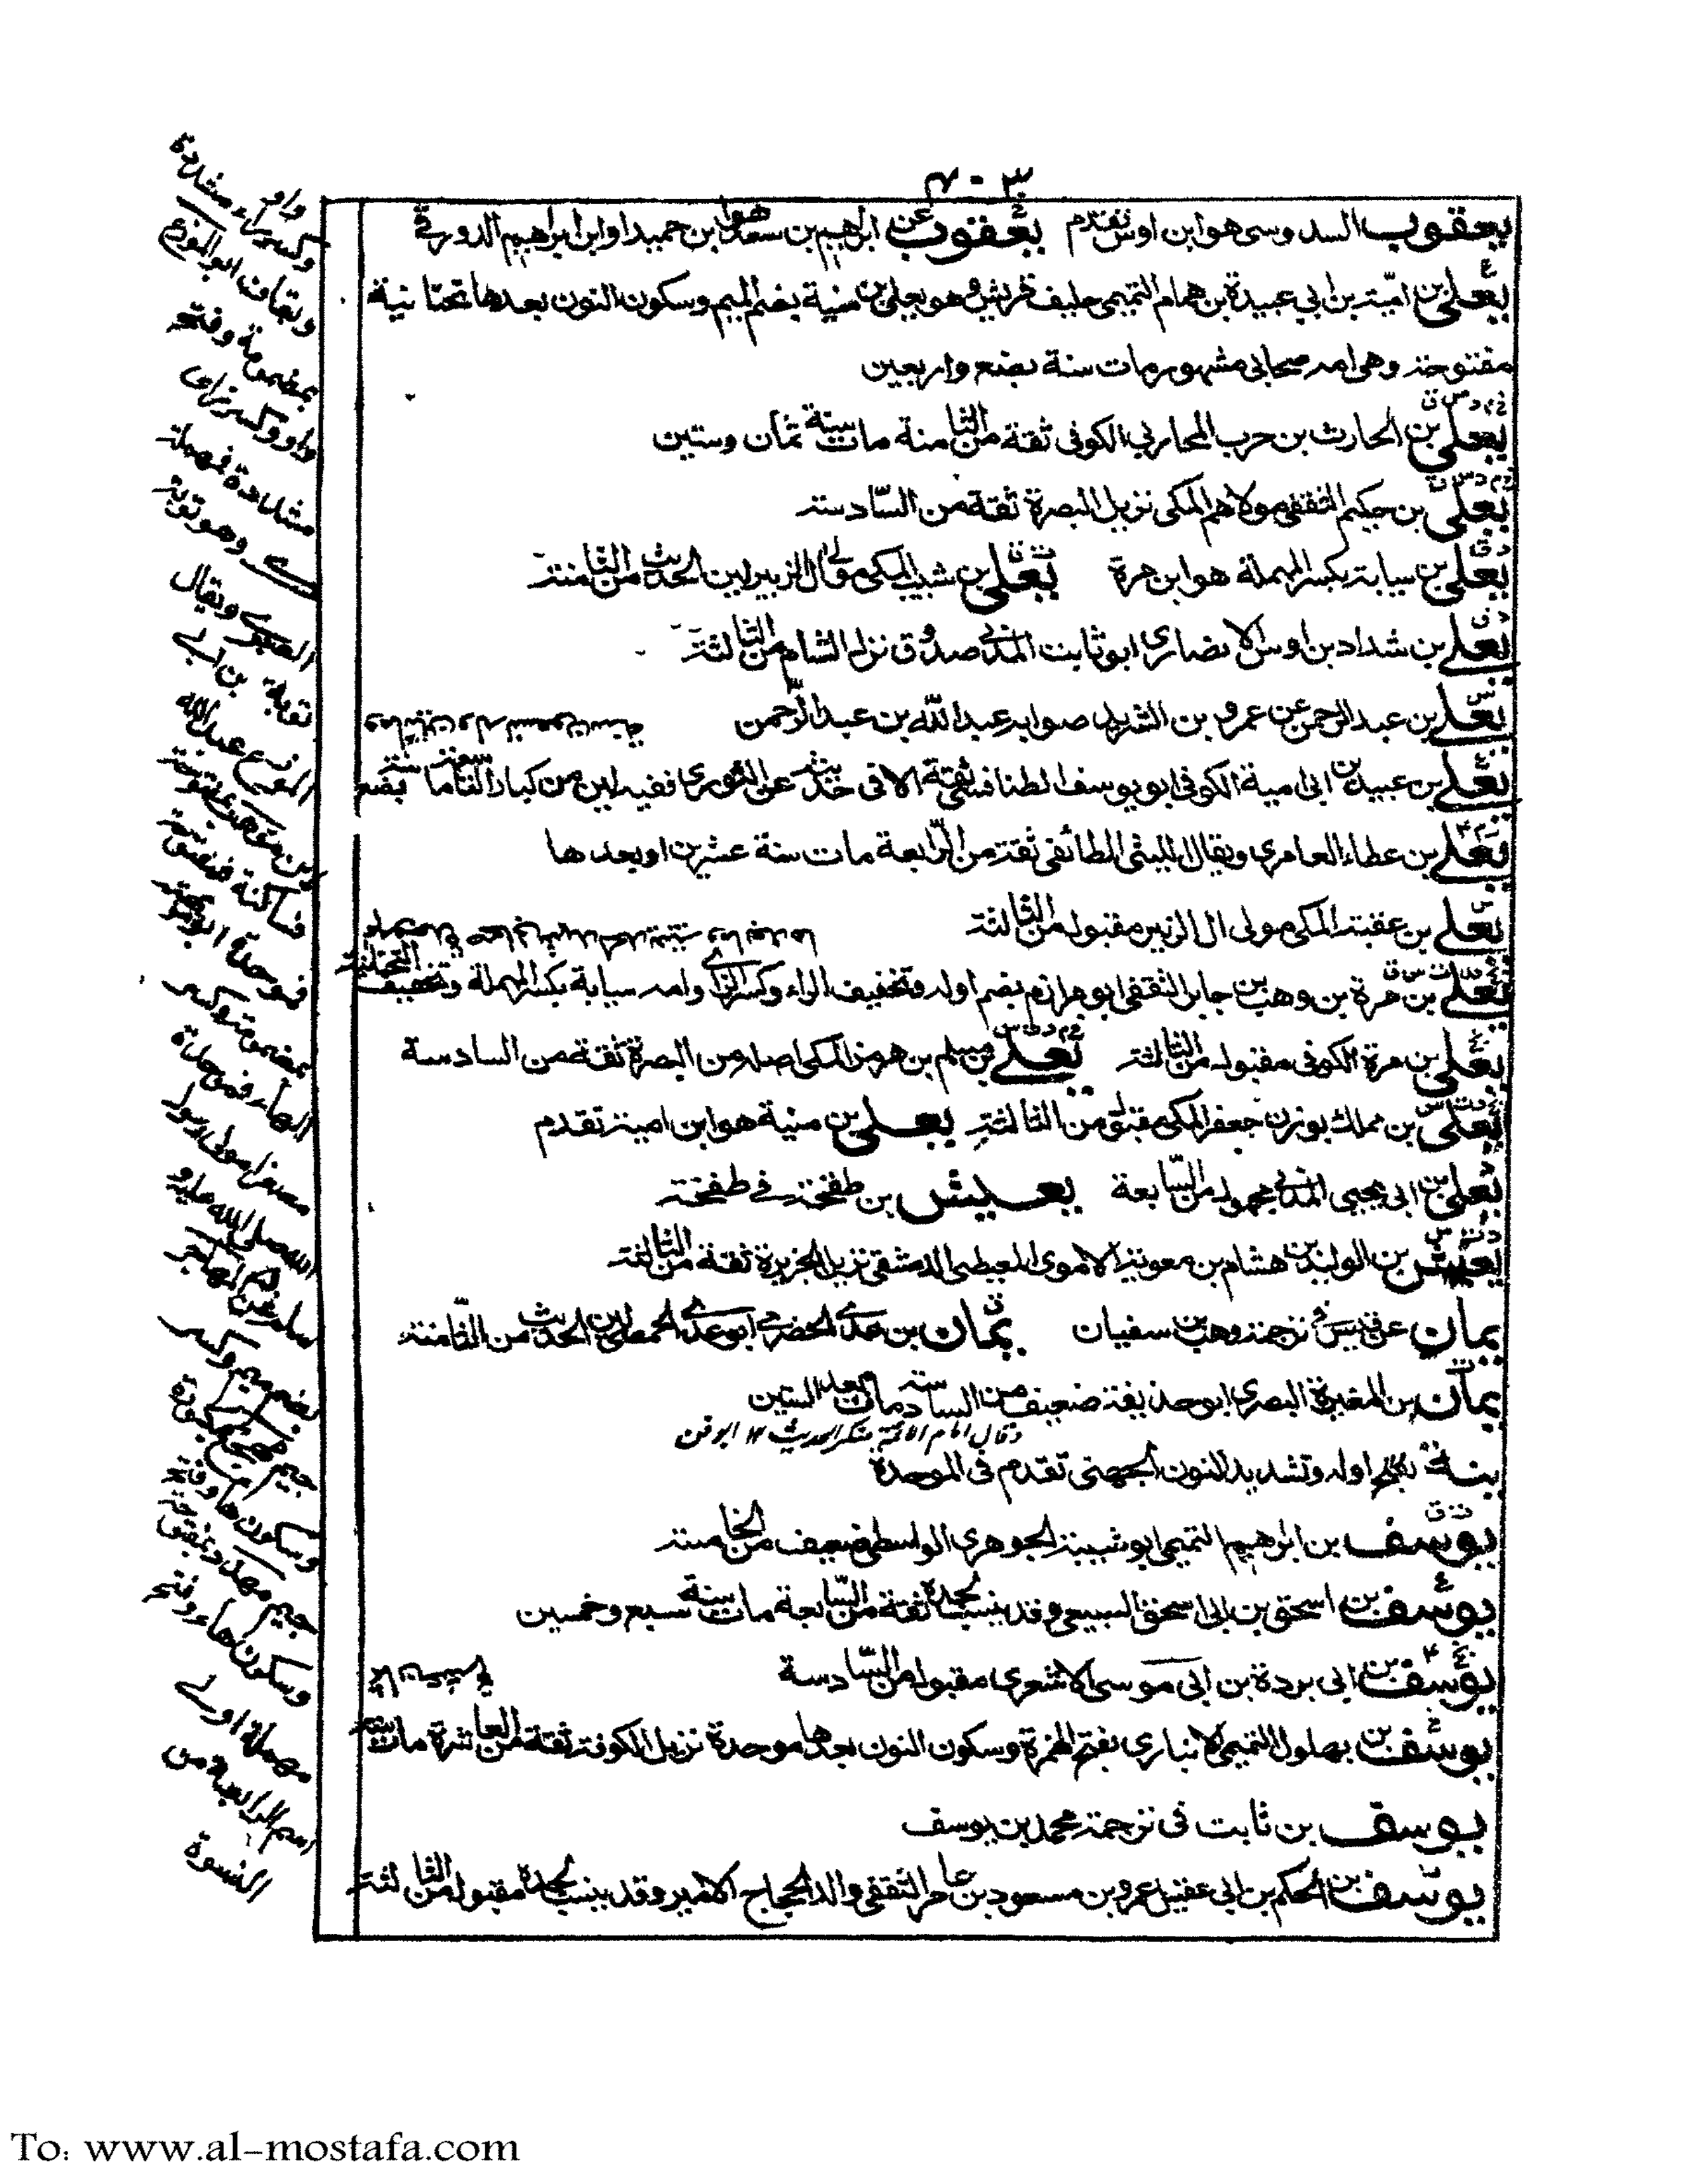 ٤٠٣
يعقوب السدوسى هو ابن اوس تقدم يعقوب عن ابراهيم بن سعد هو ابن حميد او ابن ابراهيم الدورقى
يعلى بن امية بن ابي عبيدة بن همام التميمى حليف قريش و هو يعلى بن منية بضم الميم وسكون النون بعدها تحتانية
مفتوحة وهى امه صحابى مشهور مات سنة بضع واربعين
يعلى بن الحارث بن حرب المحاربي الكوفى ثقة من الثامنة مات سنة ثمان وستين
يعلى بن حكيم الثقفى مولاهم المكى نزيل البصرة ثقة من السادسة
يعلى بن سيابة بكسر المهملة هو ابن مرة يعلى بن شبيب المكى مولى آل الزبير لين الحديث من الثامنة
يعلى بن شداد بن اوس الانصارى ابو ثابت المدنى صدوق نزل الشام من الثالثة
يعلى بن عبد الرحمن عن عمرو بن الشريد صوابه عبد الله بن عبد الرحمن
يعلى بن عبيد بن ابى امية الكوفى ابو يوسف الطنافسى ثقة الا فى حديثه عن الثورى ففيه لين من كبار التاسعة مات سنة بضع
ومائتين وله تسعون سنة
يعلى بن عطاء العامرى ويقال الليثى الطائفى ثقة من الرابعة مات سنة عشرين او بعدها
يعلى بن عقبة المكى مولى ال الزبير مقبول من الثالثة
يعلى بن مرة بن وهب بن جابر الثقفى ابو مرازم بضم اوله وتخفيف الراء وكسر الزاى وامه سيابة بكسر المهملة وتخفيف التحتانية
يعلى بن مرة الكوفى مقبول من الثالثة يعلى بن مسلم بن هرمز المكى اصله من البصرة ثقة من السادسة
يعلى بن مملك بوزن جعفر المكى مقبول من الثالثة يعلى بن منية هو ابن امية تقدم
يعلى بن ابى يحيى المدنى مجهول من السابعة يعيش بن طخفة فى طخفة
يعيش بن الوليد بن هشام بن معوية الاموى المعيطى الدمشقى نزيل الجزيرة ثقة من الثالثة
يمان عن قيس فى ترجمة وهب بن سفيان يمان بن عدى الحضرمى ابو عدى الحمصى لين الحديث من الثامنة
يمان بن المغيرة البصرى ابو حذيفة ضعيف من السادسة مات بعد الستين
وقال امام الائمة منكر الحديث ١٢
ينة بفتح اوله وتشديد النون الجهنى تقدم فى الموحدة
يوسف بن ابراهيم التميمى ابو شيبة الجوهرى الواسطى ضعيف من الخامسة
يوسف بن اسحق بن ابى اسحق السبيعى وقد ينسب لجده ثقة من السابعة مات سنة سبع وخمسين
يوسف بن ابى بردة بن ابى موسى الاشعرى مقبول من السادسة
يوسف بن بهلول التميمى الانبارى بفتح الهمزة وسكون النون بعدها موحدة نزيل الكوفة ثقة من العاشرة مات سنة
يوسف بن ثابت فى ترجمة محمد بن يوسف
يوسف بن الحكم بن ابى عقيل عمرو بن مسعود بن عامر الثقفى والد الحجاج الامير وقد ينسب لجده مقبول من الثالثة
واو
وكسر راء مشددة
وبقاف ابو المورع
بمضمومة وفتح
واو وكسر زاى
مشددة فمهملة
وهو توبة
العنبرى ويقال
بن ابى
المورع عبد الله
فساكنة
فموحدة
بمضمومة وكسر
مولى رسول
الله صلى الله عليه و
سلم
بضم ميم وكسر
جيم
وسكون هاء وفتح
جيم
وسكون هاء وفتح
مهملة اولى
اسم الرابعة من
النسوة
To: www.al-mostafa.com